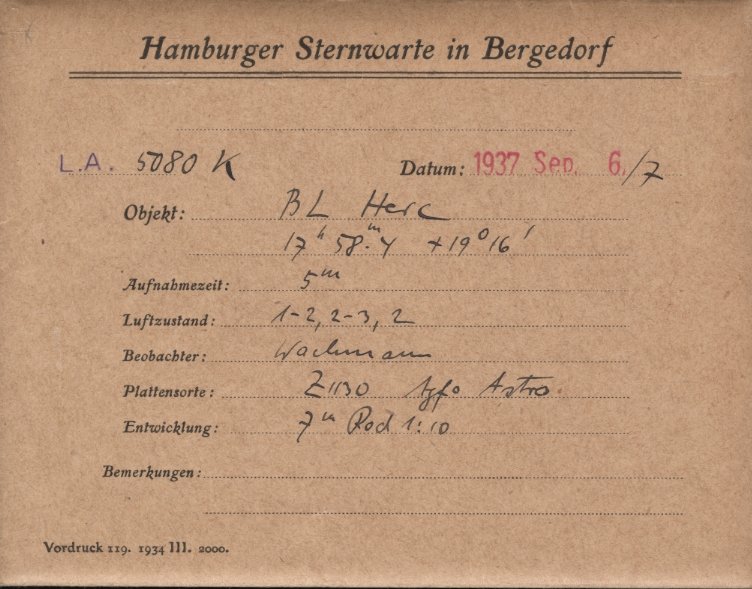 Hamburger Sternwarte in Bergedorf
L.A. 5080 K Datum: 1937 Sep. 6./7
Objekt: BL Herc
17ʰ 58ᵐ.4 +19⁰ 16'
Aufnahmezeit: 5ᵐ
Luftzustand: 1-2, 2-3, 2
Beobachter: Wachmann
Plattensorte: Z1130 Agfa Astro.
Entwicklung: 7ᵐ Rod 1:10
Bemerkungen:
Vordruck 119. 1934 III. 2000.